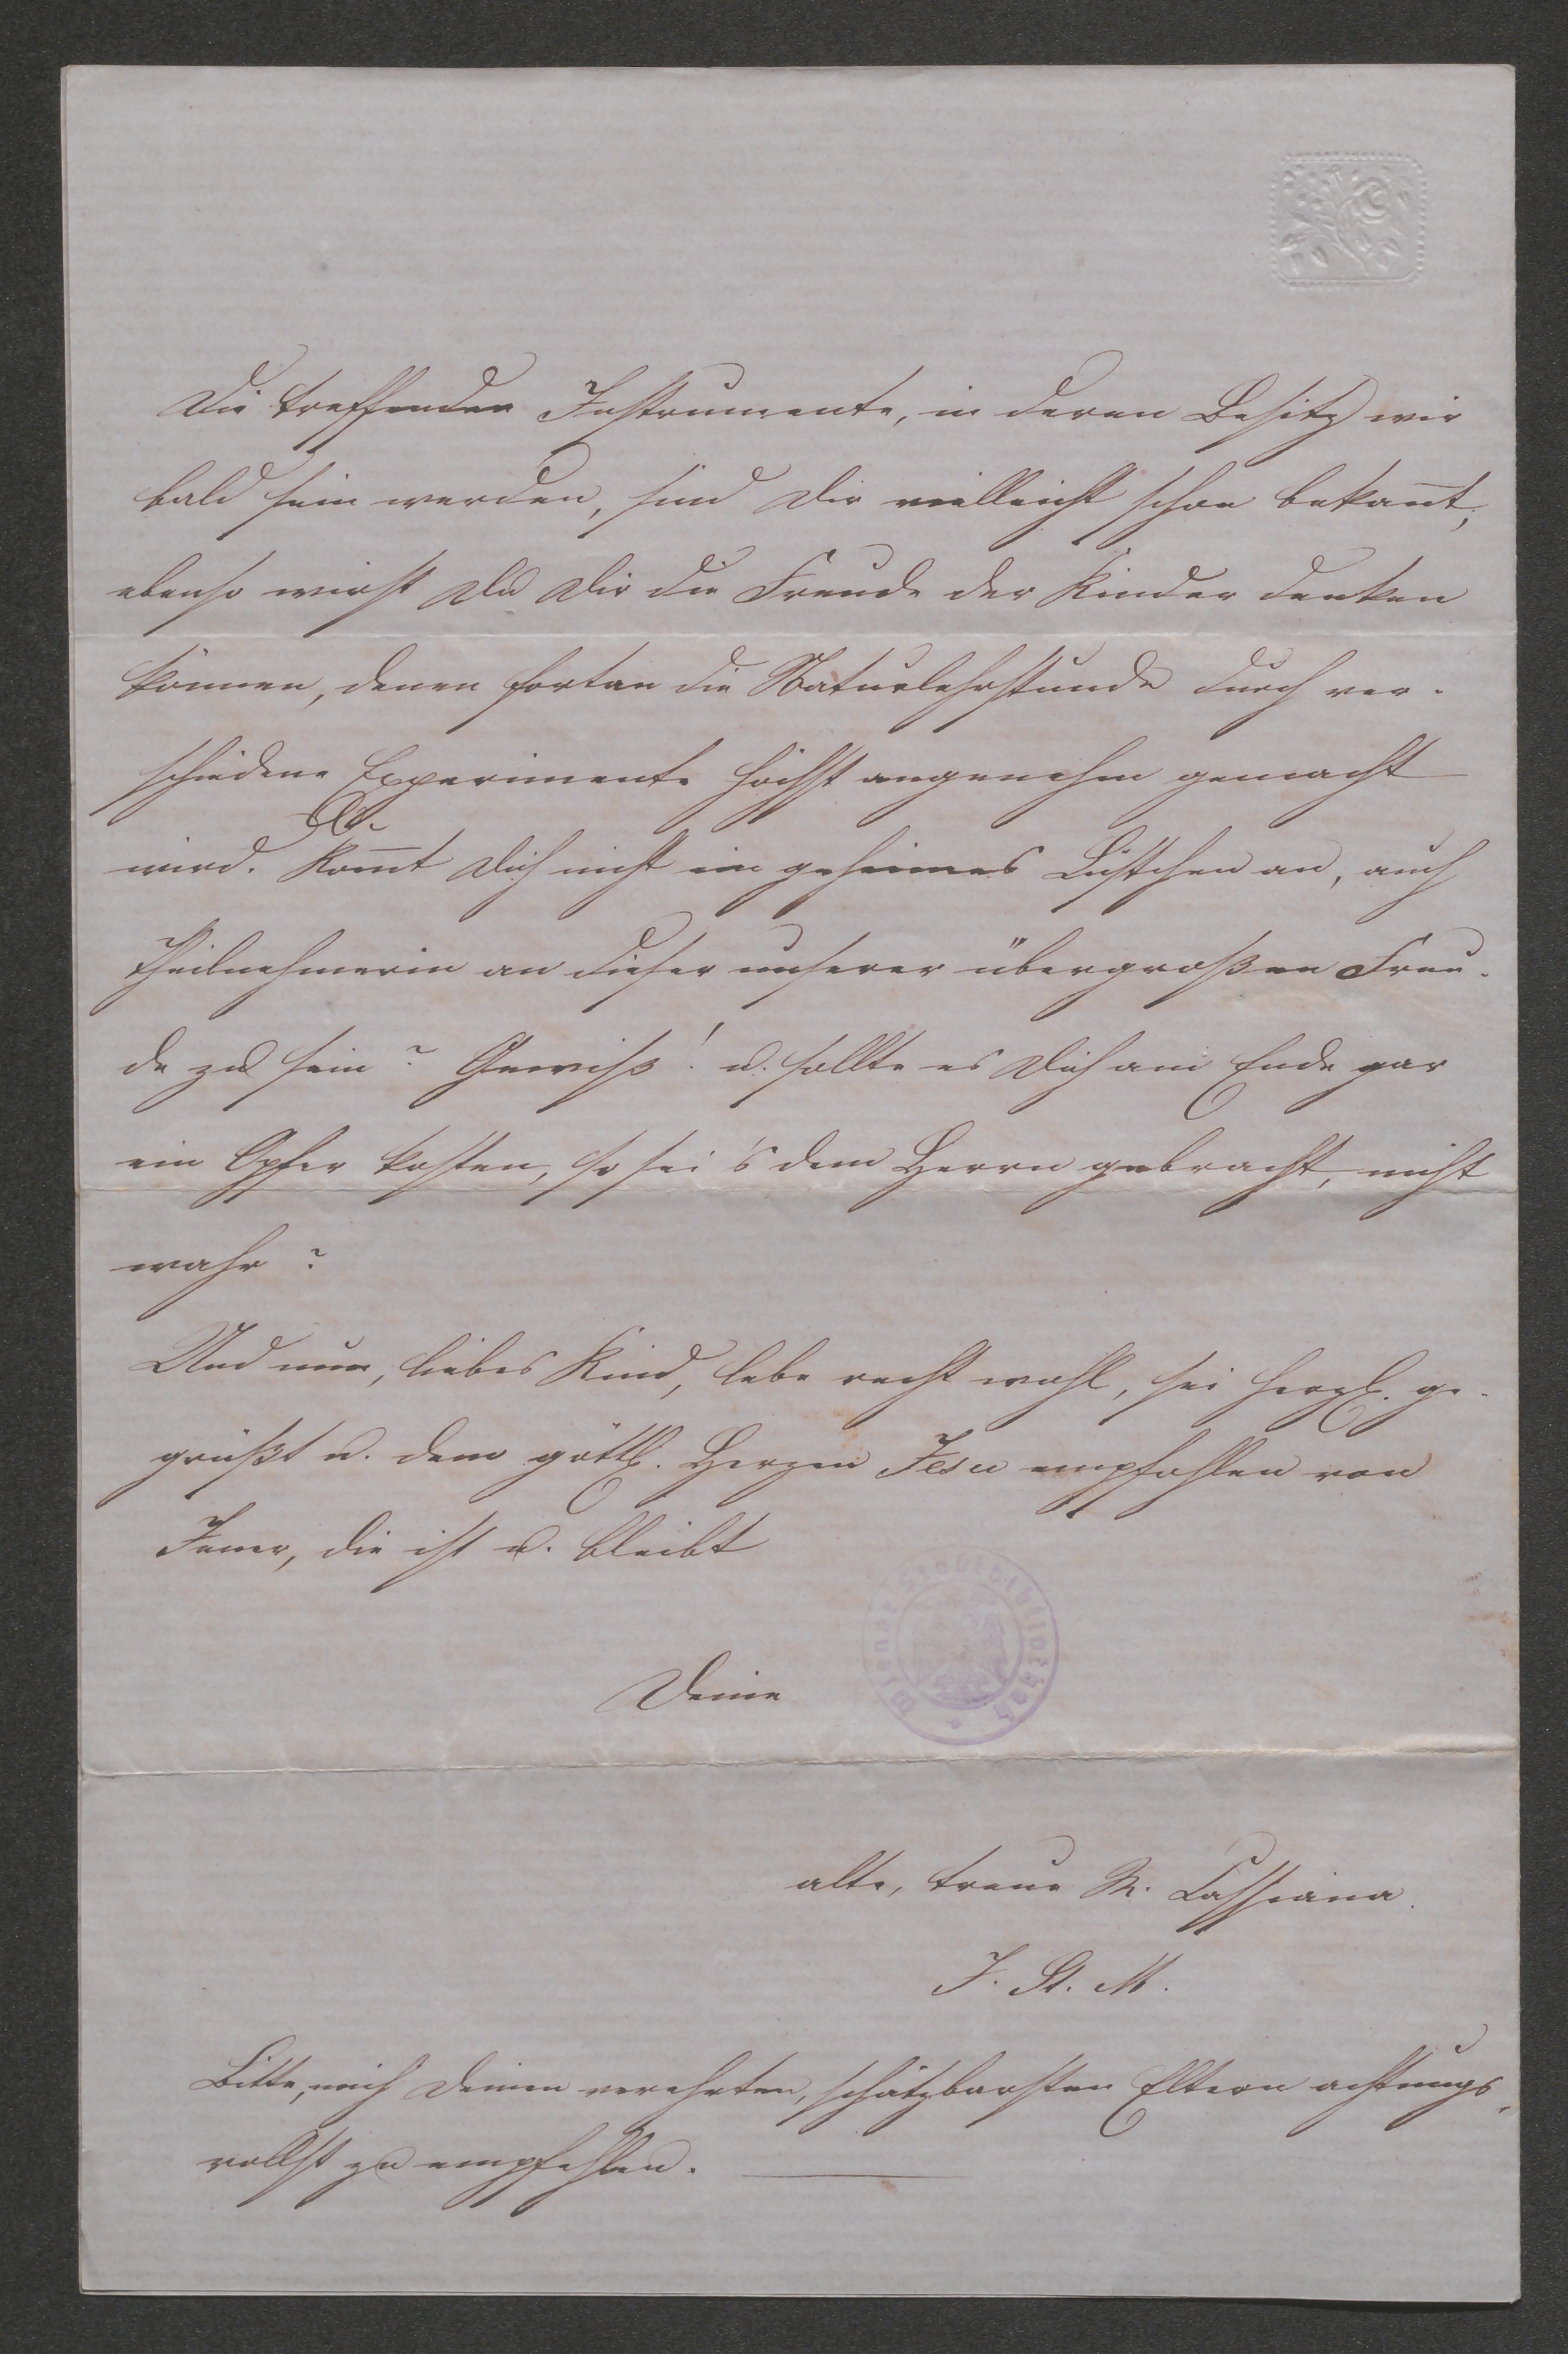 Die treffenden Instrumente, in deren Besitz wir
bald sein werden, sind Dir vielleicht schon bekan̄t,
ebenso wirst Du Dir die Freude der Kinder denken
können, denen fortan die Naturlehrstunde durch ver-
schiedene Experimente höchst angenehm gemacht
wird. Kom̄t Dich nicht ein geheimes Lüstchen an, auch
Theilnehmerin an dieser unserer übergroßen Freu-
de zu sein? Gewiß! u. sollte es Dich am Ende gar
ein Opfer kosten, so sei's dem Herrn gebracht, nicht
wahr?
Und nun, liebes Kind, lebe recht wohl, sei herzl. ge-
grüßt u. dem göttl. Herzen Jesu empfohlen von
Jener, die ist u. bleibt
Deine
Wiener Stadtbibliothek
alte, treue M. Cassiana.
J. St. M.
Bitte, mich Deinen verehrten, schätzbarsten Eltern achtungs-
vollst zu empfehlen.